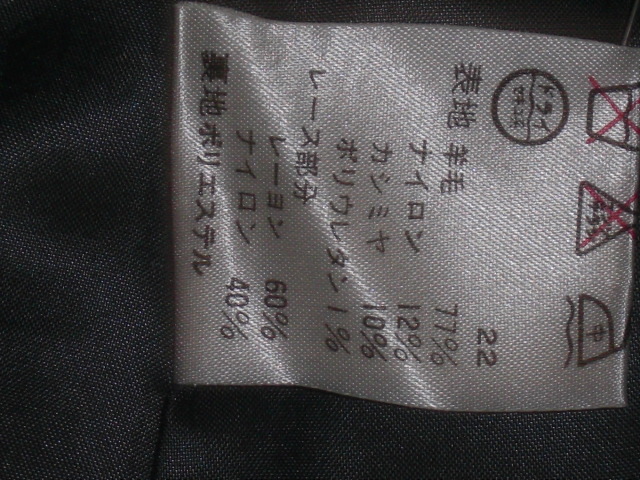 中
ドライ
22
表地 羊毛 77%
ナイロン 12%
カシミヤ 10%
ポリウレタン 1%
レース部分
レーヨン 60%
ナイロン 40%
裏地 ポリエステル